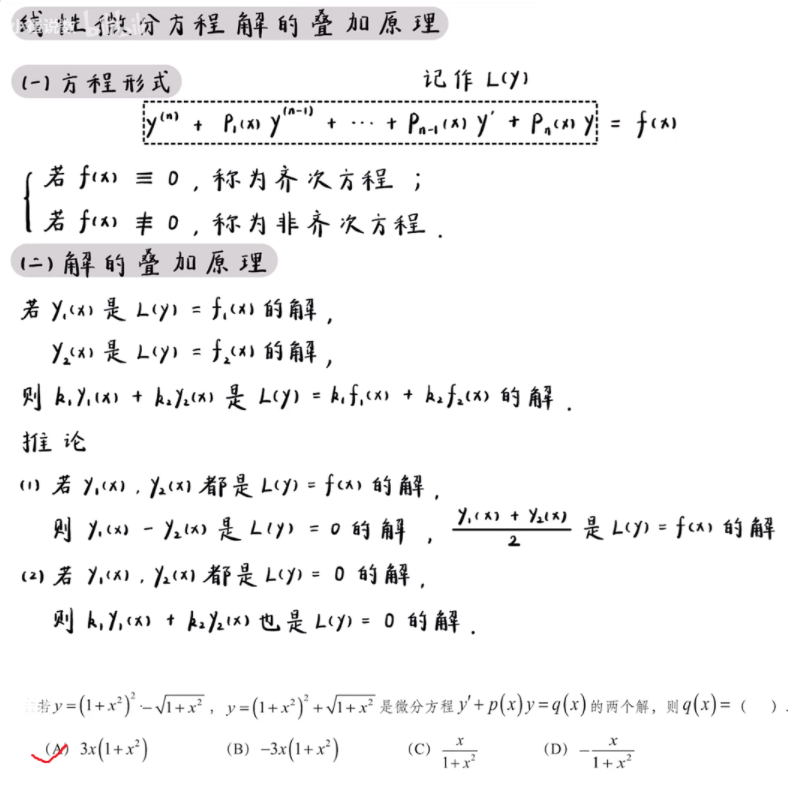 线性微分方程解的叠加原理
(一)方程形式
记作 L(y)
y⁽ⁿ⁾ + P₁(x) y⁽ⁿ⁻¹⁾ + ··· + Pₙ₋₁(x) y′ + Pₙ(x) y = f(x)
若 f(x) ≡ 0 , 称为齐次方程 ;
若 f(x) ≢ 0 , 称为非齐次方程 .
(二)解的叠加原理
若 y₁(x) 是 L(y) = f₁(x) 的解 ,
y₂(x) 是 L(y) = f₂(x) 的解 ,
则 k₁y₁(x) + k₂y₂(x) 是 L(y) = k₁f₁(x) + k₂f₂(x) 的解 .
推论
(1) 若 y₁(x) , y₂(x) 都是 L(y) = f(x) 的解 ,
则 y₁(x) - y₂(x) 是 L(y) = 0 的解 , (y₁(x) + y₂(x))/2 是 L(y) = f(x) 的解
(2) 若 y₁(x) , y₂(x) 都是 L(y) = 0 的解 ,
则 k₁y₁(x) + k₂y₂(x) 也是 L(y) = 0 的解 .
若 y=(1+x²)²-√(1+x²) , y=(1+x²)²+√(1+x²) 是微分方程 y′+p(x)y=q(x) 的两个解，则 q(x)=( ).
(A) 3x(1+x²) (B) -3x(1+x²) (C) x/(1+x²) (D) -x/(1+x²)